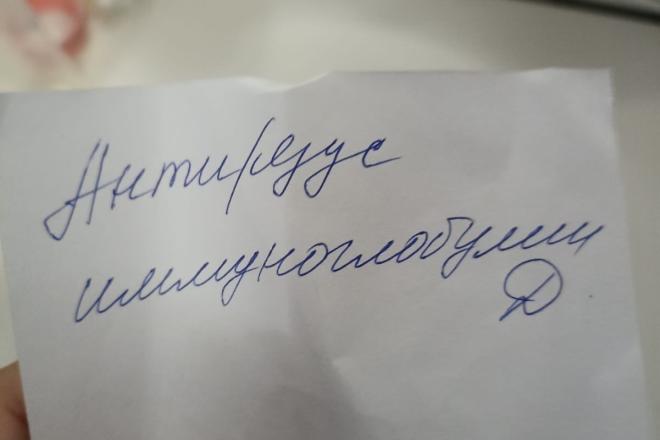 Антирезус
иммуноглобулин
Д